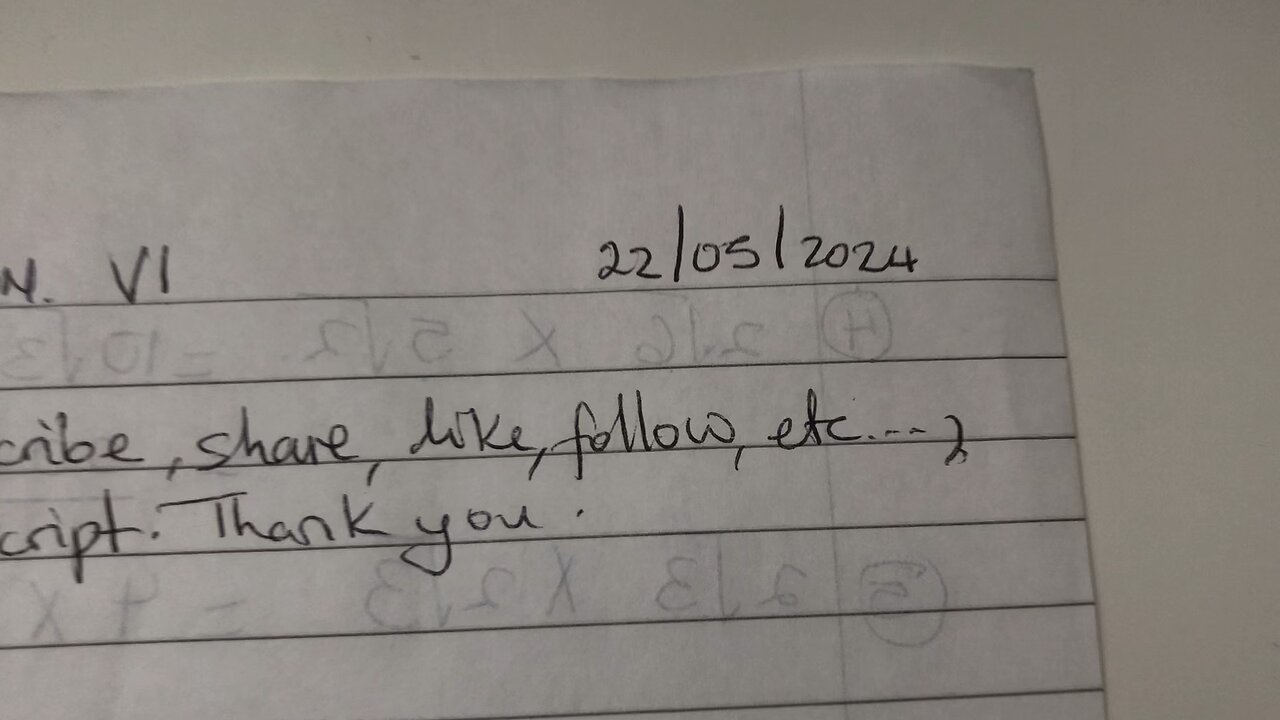 N. VI 22/05/2024
cribe, share, like, follow, etc...,
cript. Thank you.